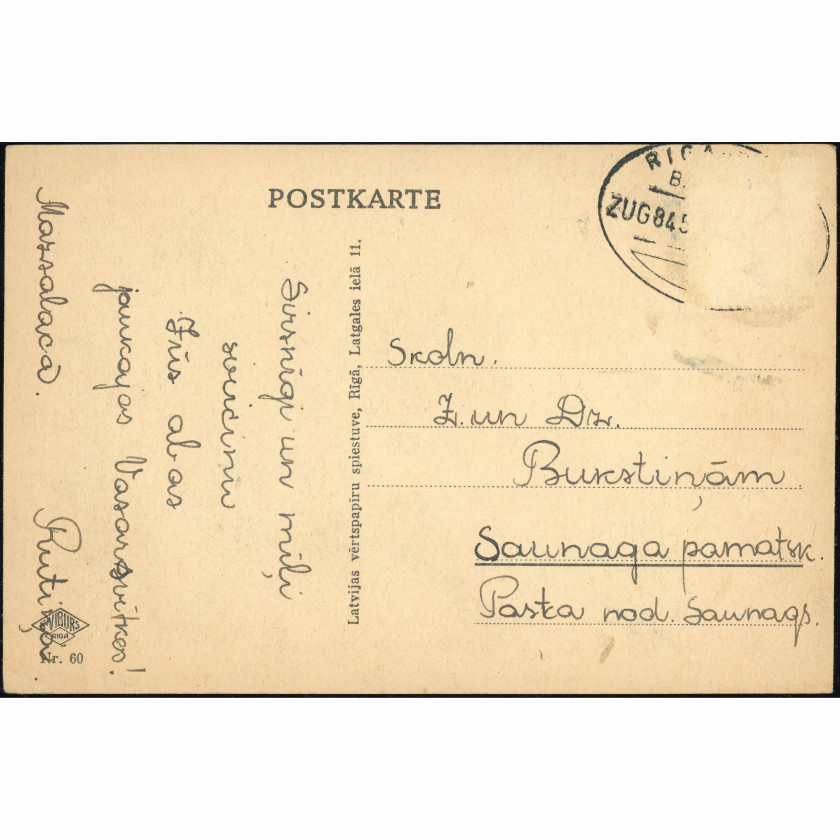 POSTKARTE
RIGA
ZUG 845
Sirsnīgi un mīļi
sveicinu
Jūs abas
jaukajos Vasarsvētkos!
Mazsalacā.
Rutiņa
Latvijas vērtspapīru spiestuve, Rīgā, Latgales ielā 11.
Skoln.
Z. un Dz.
Bukstiņām.
Saunaga pamatsk.
Pasta nod. Saunags.
WIBURS
RIGA
Nr. 60